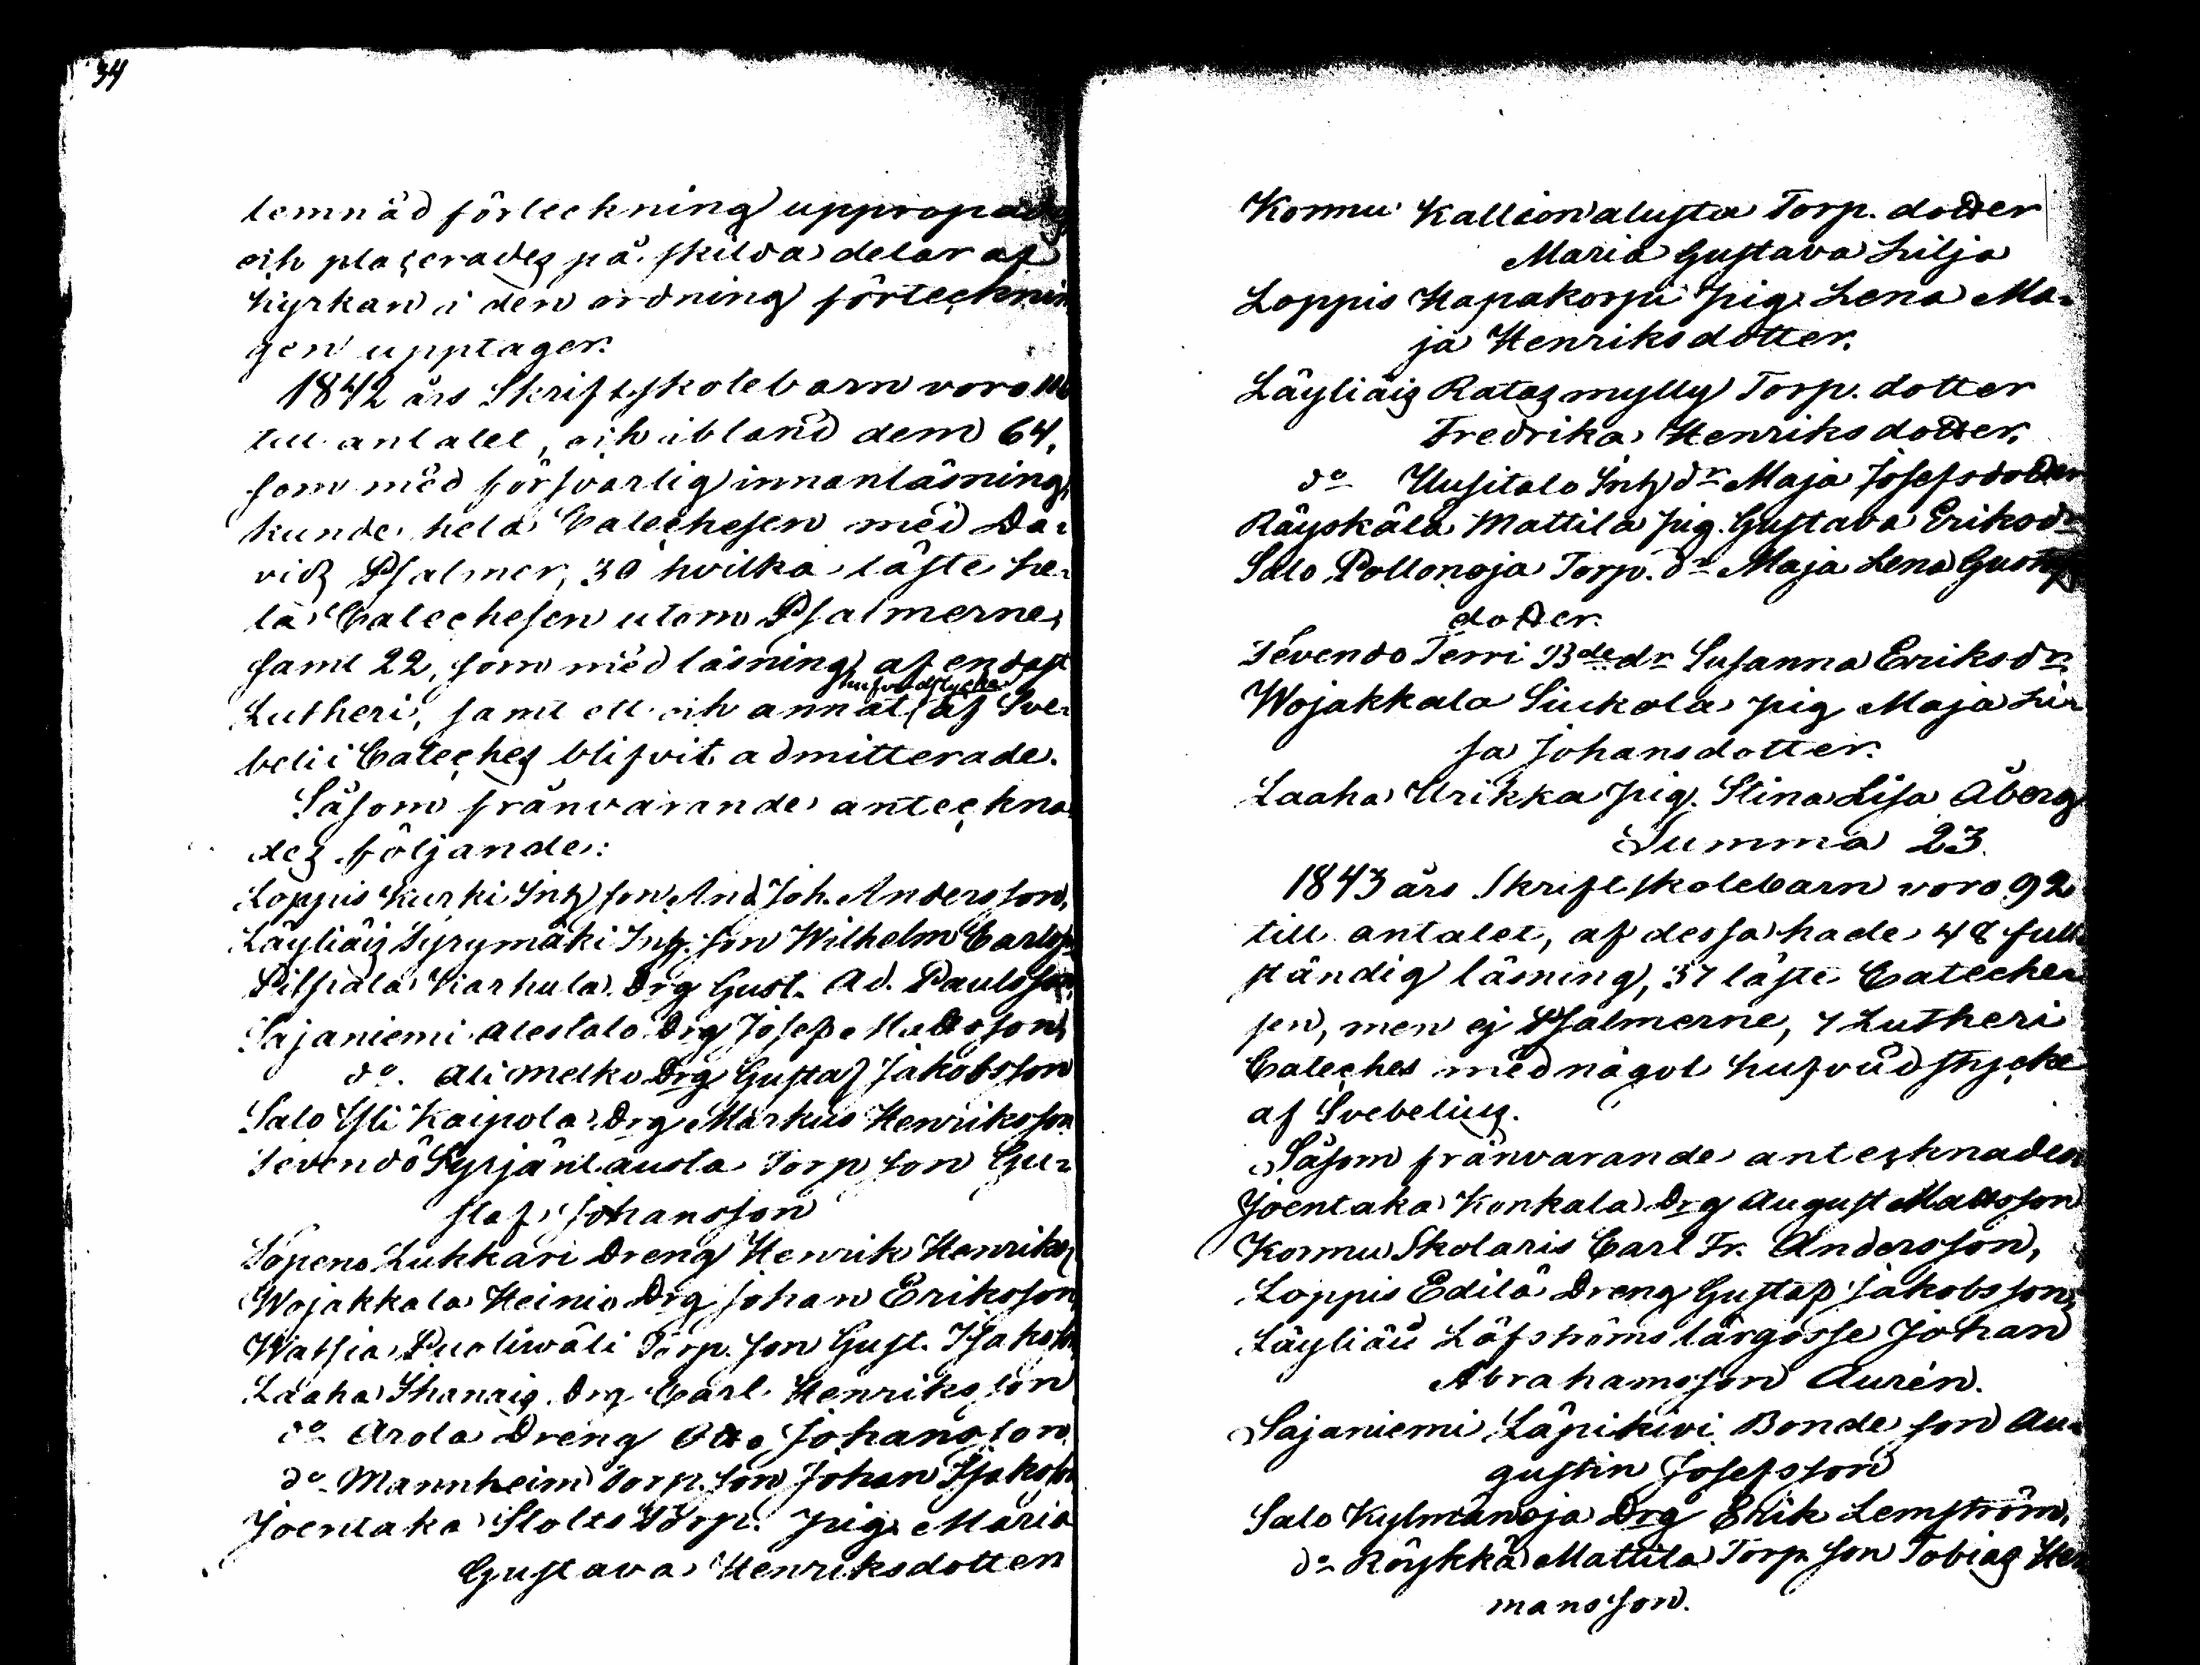 34
lemnad förteckning uppropades
och placerades på skilda delar af
kyrkan i den ordning förtecknin
gen upptager.
1842 års Skriftskolebarn voro 116
till antalet, och ibland dem 64,
som med försvarlig innanläsning,
kunde hela Catechesen med Da-
vidz Psalmer, 30 hvilka läste he-
la Catechesen utom Psalmerne,
samt 22, som med läsning af endast
hufvudstycke
Lutheri, samt ett och annat af Sve-
belii Cateches blifvit admitterade.
Såsom frånvarande anteckna
des följande:
Loppis Kurki Inh son And Joh. Andersson,
Läyliäis Syrymäki Inh. son Wilhelm Carlss
Pilpala Karhula Drg Gust. Ad. Paulsson,
Sajaniemi Alestalo Drg Josef Mattsson,
do. Ali Melko Drg Gustaf Jakobsson
Salo Yli Kaipola Drg Markus Henriksson
Tevendö Syrjäntausta Torp son Gu-
staf Johansson
Topeno Luhkari Dreng Henrik Henriks
Wojakkala Heinio Drg Johan Eriksson
Watsia Puoliwäli Torp. son Gust. Isaksson
Laaha Ihanais Drg Carl Henriksson
do Arola Dreng Otto Johansson
do Mannheim Torp. son Johan Isaksson
Joentaka Stolts Torp. pig. Maria
Gustava Henriksdotter
Kormu Kallionalusta Torp. dotter
Maria Gustava Lilja
Loppis Hapakorpi pig. Lena Ma-
ja Henriksdotter.
Läyliäis Ratasmylly Torp. dotter
Fredrika Henriksdotter,
do Uusitalo Inh dr Maja Josefsdotter
Räyskälä Mattila pig. Gustava Eriksdr
Salo Pollonoja Torp. dr Maja Lena Gustafs
dotter.
Tevendö Terri Bde dr Susanna Eriksdr
Wojakkala Siukola pig Maja Li-
sa Johansdotter.
Laaha Urikka pig. Stina Lisa Åberg
Summa 23.
1843 års Skriftskolebarn voro 92
till antalet, af dessa hade 48 full-
ständig läsning, 37 läste Cateche-
sen, men ej Psalmerne, 7 Lutheri
Cateches med något hufvudstycke
af Svebelius.
Såsom frånvarande antecknades
Joentaka Konkala Drg August Mattsson
Kormu Skolaris Carl Fr. Andersson,
Loppis Edilä Dreng Gustaf Jakobsson,
Läyliäis Löfströms lärgosse Johan
Abrahamsson Aurén.
Sajaniemi Läpikivi Bonde son Au-
gustin Josefsson
Salo Kylmänoja Drg Erik Lemström,
do Röykkä Mattila Torp son Tobias Her
mansson.